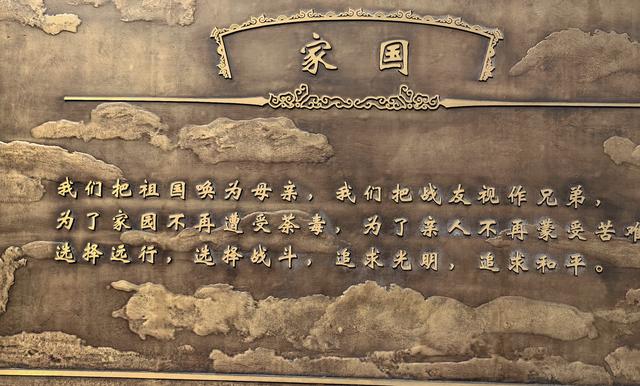 家国
我们把祖国唤为母亲，我们把战友视作兄弟，
为了家园不再遭受荼毒，为了亲人不再蒙受苦难
选择远行，选择战斗，追求光明，追求和平。